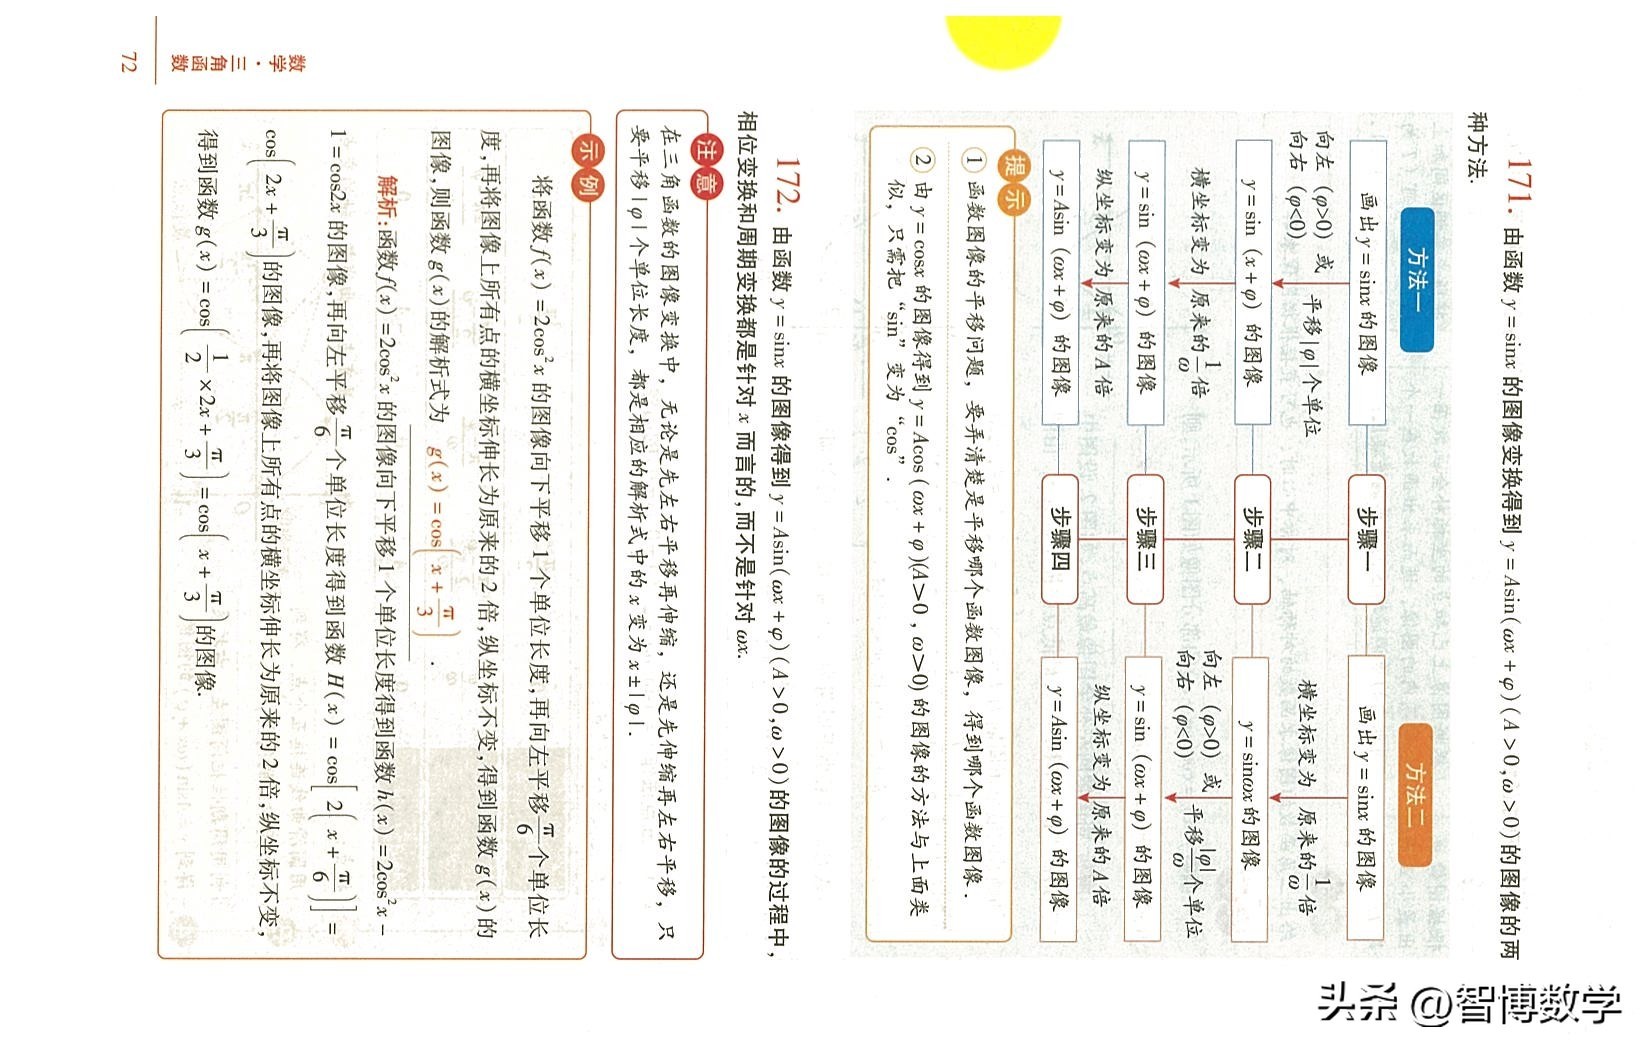 171. 由函数 y=sinx 的图像变换得到 y=Asin(ωx+φ)(A>0,ω>0)的图像的两
种方法.
方法一
画出 y=sinx 的图像
向左（φ>0）或
向右（φ<0）
平移|φ|个单位
y=sin（x+φ）的图像
横坐标变为
原来的1/ω倍
y=sin（ωx+φ）的图像
纵坐标变为
原来的A倍
y=Asin（ωx+φ）的图像
步骤一
步骤二
步骤三
步骤四
方法二
画出 y=sinx 的图像
横坐标变为
原来的1/ω倍
y=sinωx的图像
向左（φ>0）或
向右（φ<0）
平移|φ|/ω个单位
y=sin（ωx+φ）的图像
纵坐标变为
原来的A倍
y=Asin（ωx+φ）的图像
提示
① 函数图像的平移问题，要弄清楚是平移哪个函数图像，得到哪个函数图像.
② 由y=cosx的图像得到y=Acos(ωx+φ)(A>0，ω>0)的图像的方法与上面类
似，只需把“sin”变为“cos”.
172. 由函数 y=sinx 的图像得到 y=Asin(ωx+φ)(A>0,ω>0)的图像的过程中,
相位变换和周期变换都是针对 x 而言的,而不是针对 ωx.
注意
在三角函数的图像变换中，无论是先左右平移再伸缩，还是先伸缩再左右平移，只
要平移|φ|个单位长度，都是相应的解析式中的x变为x±|φ|.
示例
将函数f(x)=2cos²x 的图像向下平移 1 个单位长度,再向左平移π/6个单位长
度,再将图像上所有点的横坐标伸长为原来的 2 倍,纵坐标不变,得到函数 g(x)的
图像,则函数 g(x)的解析式为 g(x)=cos(x+π/3).
解析:函数f(x)=2cos²x 的图像向下平移 1 个单位长度得到函数 h(x)=2cos²x-
1=cos2x 的图像,再向左平移π/6个单位长度得到函数 H(x)=cos[2(x+π/6)]=
cos(2x+π/3)的图像,再将图像上所有点的横坐标伸长为原来的 2 倍,纵坐标不变,
得到函数 g(x)=cos(1/2×2x+π/3)=cos(x+π/3)的图像.
数学·三角函数
72
头条 @智博数学